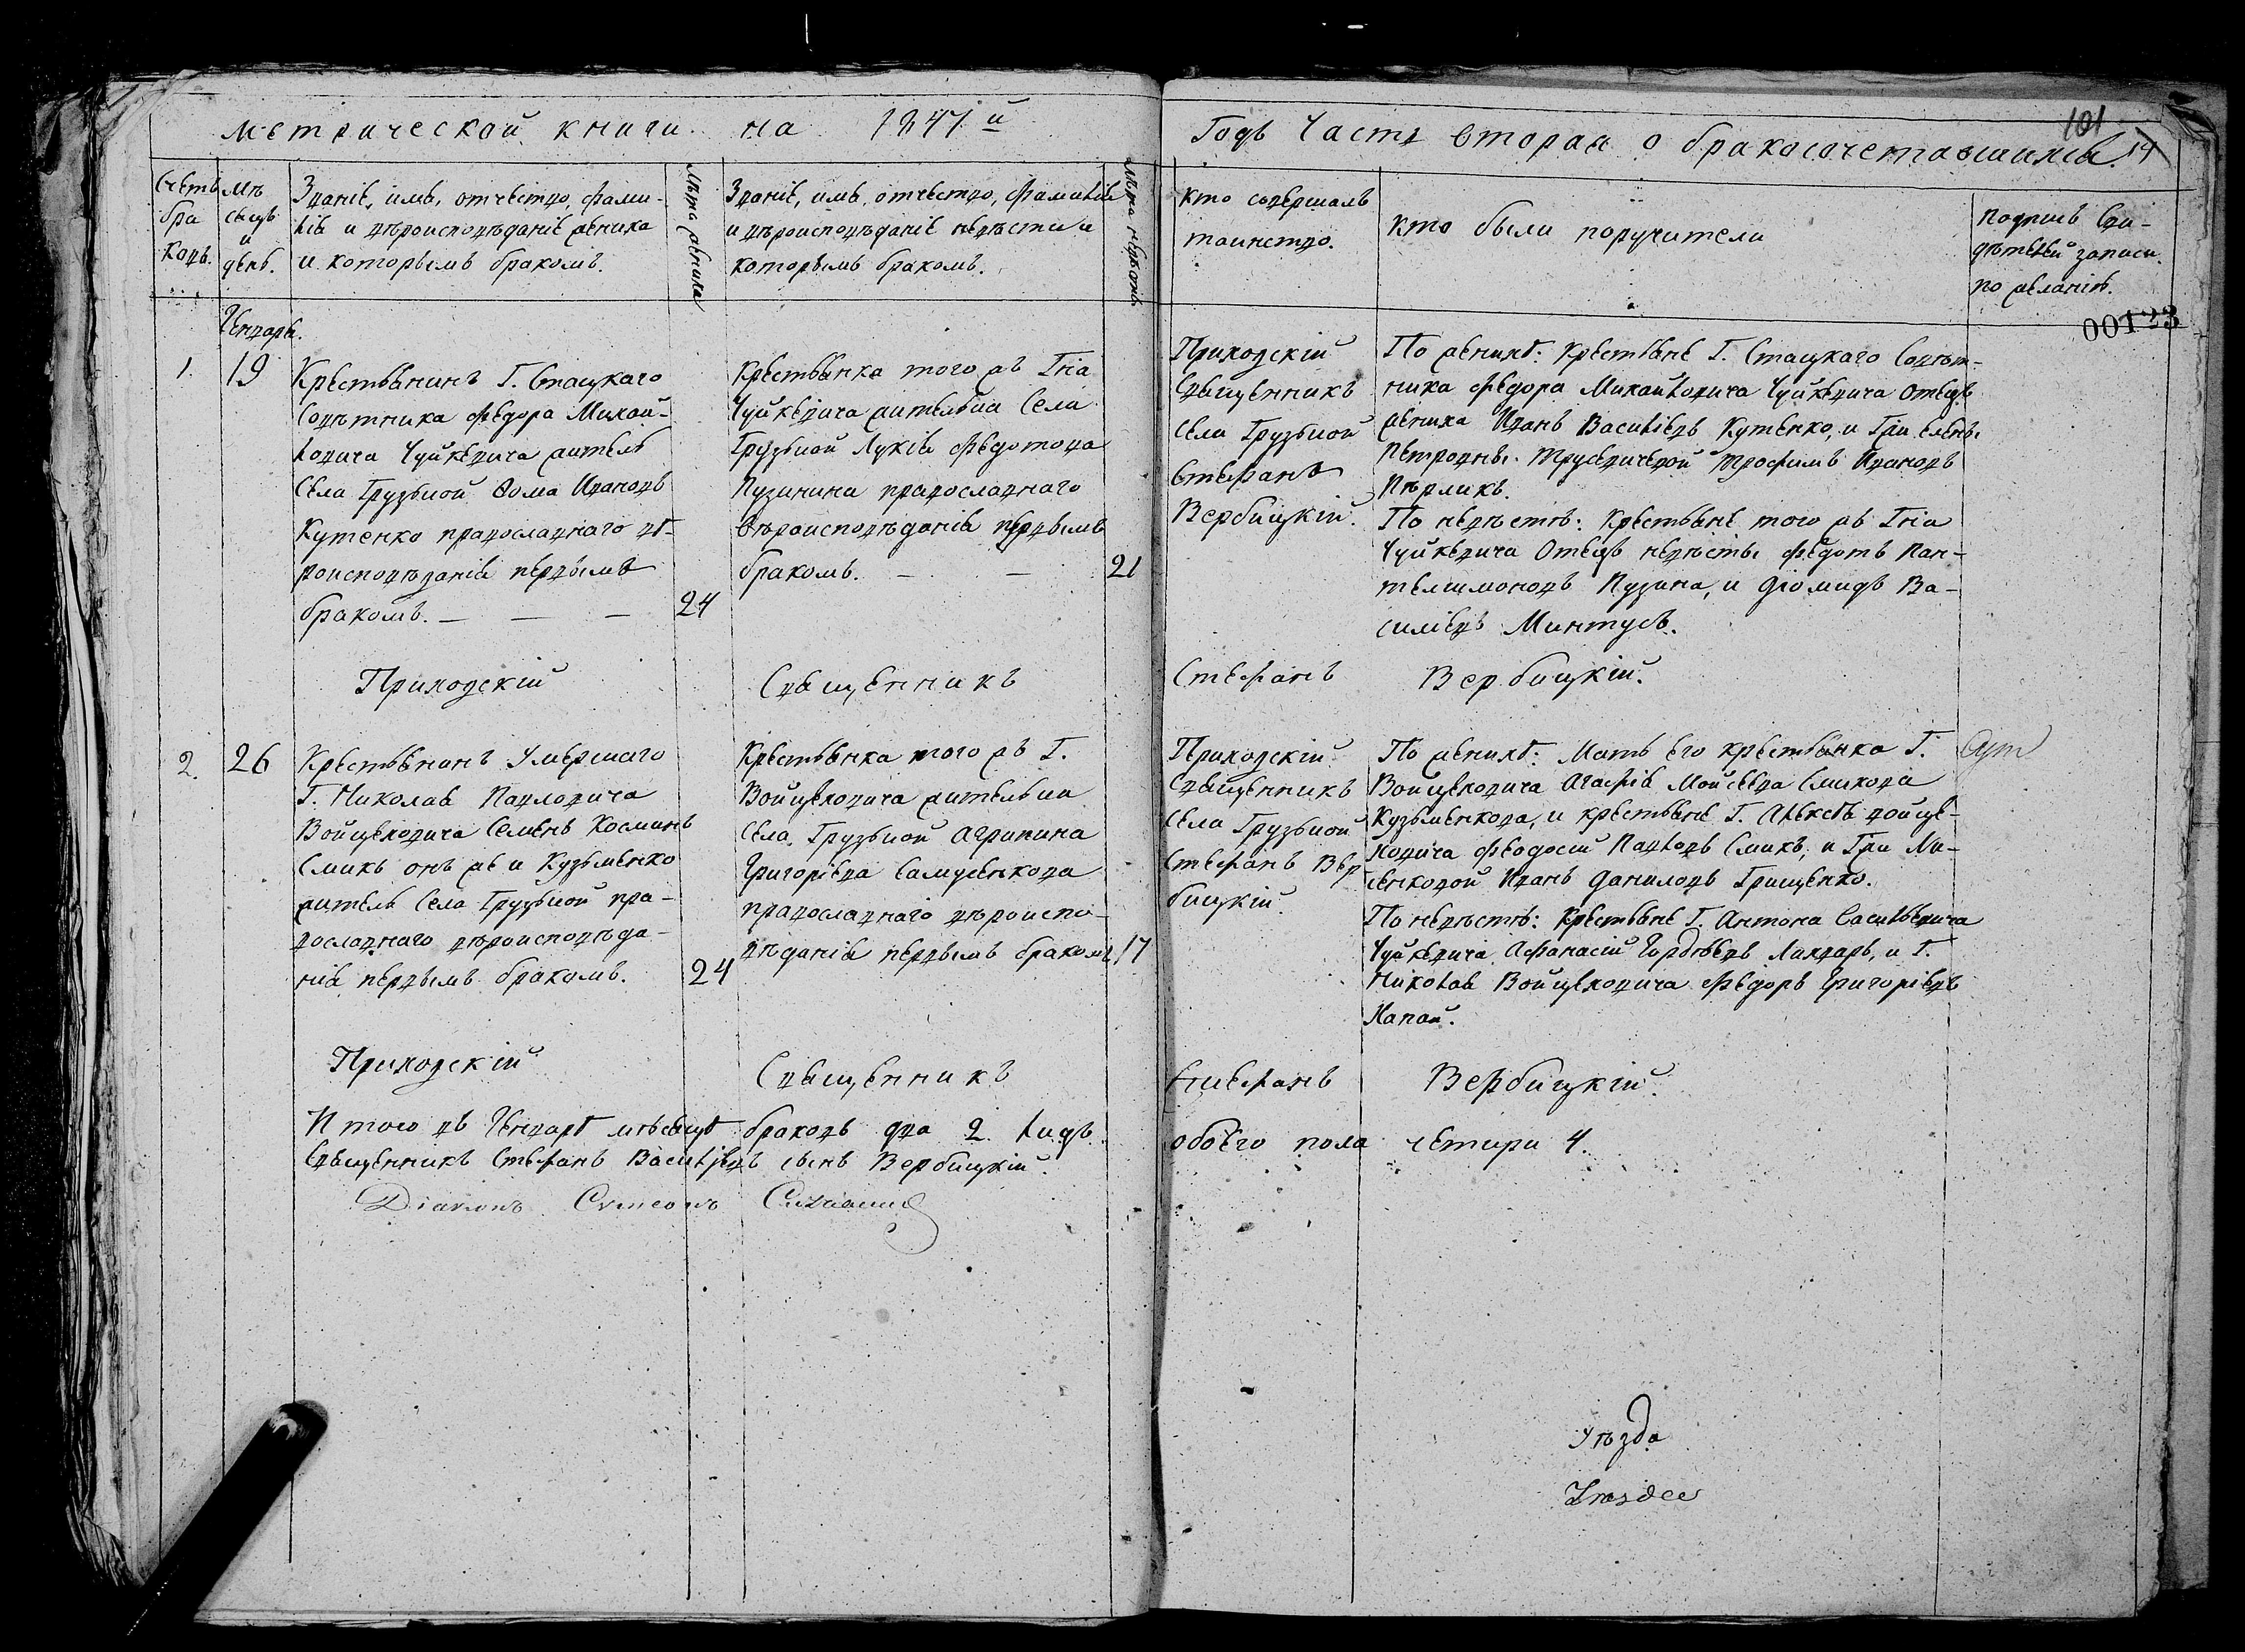 Метрической книги на 1847й
Годъ Часть вторая о бракосочетавшихся.
101
14
Счетъ бра ковъ.
Мѣ сяцъ и день.
Званіе, имя, отчество, фами-
лія и вѣроисповѣданіе жениха
и которымъ бракомъ.
Лѣта жениха
Званіе, имя, отчество, фамилія
и вѣроисповѣданіе невѣсты и
которымъ бракомъ.
Лѣта невѣсты
Кто совершалъ
таинство.
Кто были поручители
Подпись Сви-
дѣтелей записи
по желанію.
00123
Генваря.
1.
19
Крестьянинъ Г. Стацкаго
Совѣтника Федора Михай-
ловича Чуйкевича житель
Села Грузкой Фома Ивановъ
Кутенко православнаго вѣ-
роисповѣданія первымъ
бракомъ.
24
Крестьянка того жъ Гна
Чуйкевича жителька Села
Грузкой Лукія Федотова
Пузинина православнаго
вѣроисповѣданія первымъ
бракомъ.
21
Приходскій
Священникъ
Села Грузкой
Стефанъ
Вербицкій.
По женихѣ: Крестьяне Г. Стацкаго Совѣт-
ника Федора Михайловича Чуйкевича Отецъ
жениха Иванъ Василіевъ Кутенко, и Гжи Елены
Петровны Трофимъ Ивановъ
Пѣрликъ.
По невѣстѣ: Крестьяне того жъ Гна
Чуйкевича Отецъ невѣсты Федотъ Пан-
телимоновъ Пузина, и Діомидъ Ва-
силіевъ Минтусъ.
Приходскій Священникъ Стефанъ Вербицкій.
2.
26
Крестьянинъ Умершаго
Г. Николая Павловича
Войцеховича Семенъ Косминъ
Смикъ онъ же и Кузьменко
житель Села Грузкой пра-
вославнаго вѣроисповѣда-
нія первымъ бракомъ.
24
Крестьянка того жъ Г.
Войцеховича жителька
Села Грузкой Агрипина
Григоріева Самусенкова
православнаго вѣроиспо-
вѣданія первымъ бракомъ
17
Приходскій
Священникъ
Села Грузкой
Стефанъ Вер
бицкій.
По женихѣ: Мать его крестьянка Г.
Войцеховича Агафія Мойсеева Смикова
Кузьменкова, и крестьяне Г. Алексѣя Войце-
ховича Феодосій Павловъ Смикъ, и Гжи Ли-
сенковой Иванъ Даниловъ Грищенко.
По невѣстѣ: Крестьяне Г. Антона Васильевича
Чуйкевича Афанасій Гордѣевъ Лихварь, и Г.
Николая Войцеховича Федоръ Григоріевъ
Хапай.
Приходскій Священникъ Стефанъ Вербицкій.
Итого въ Генварѣ мѣсяцѣ браковъ два 2. Лицъ обоего пола четири 4.
Священникъ Стефанъ Василіевъ сынъ Вербицкій.
Діаконъ Сѵмеонъ
Уѣзда
Уѣзда